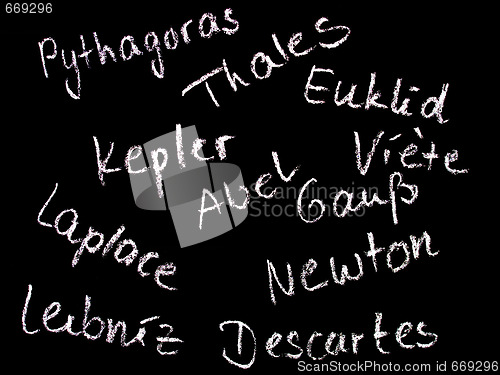 669296
Pythagoras
Thales
Euklid
Kepler
Viète
Abel
Gauß
Laplace
Newton
Leibniz
Descartes
StockphotoPro.com/669296